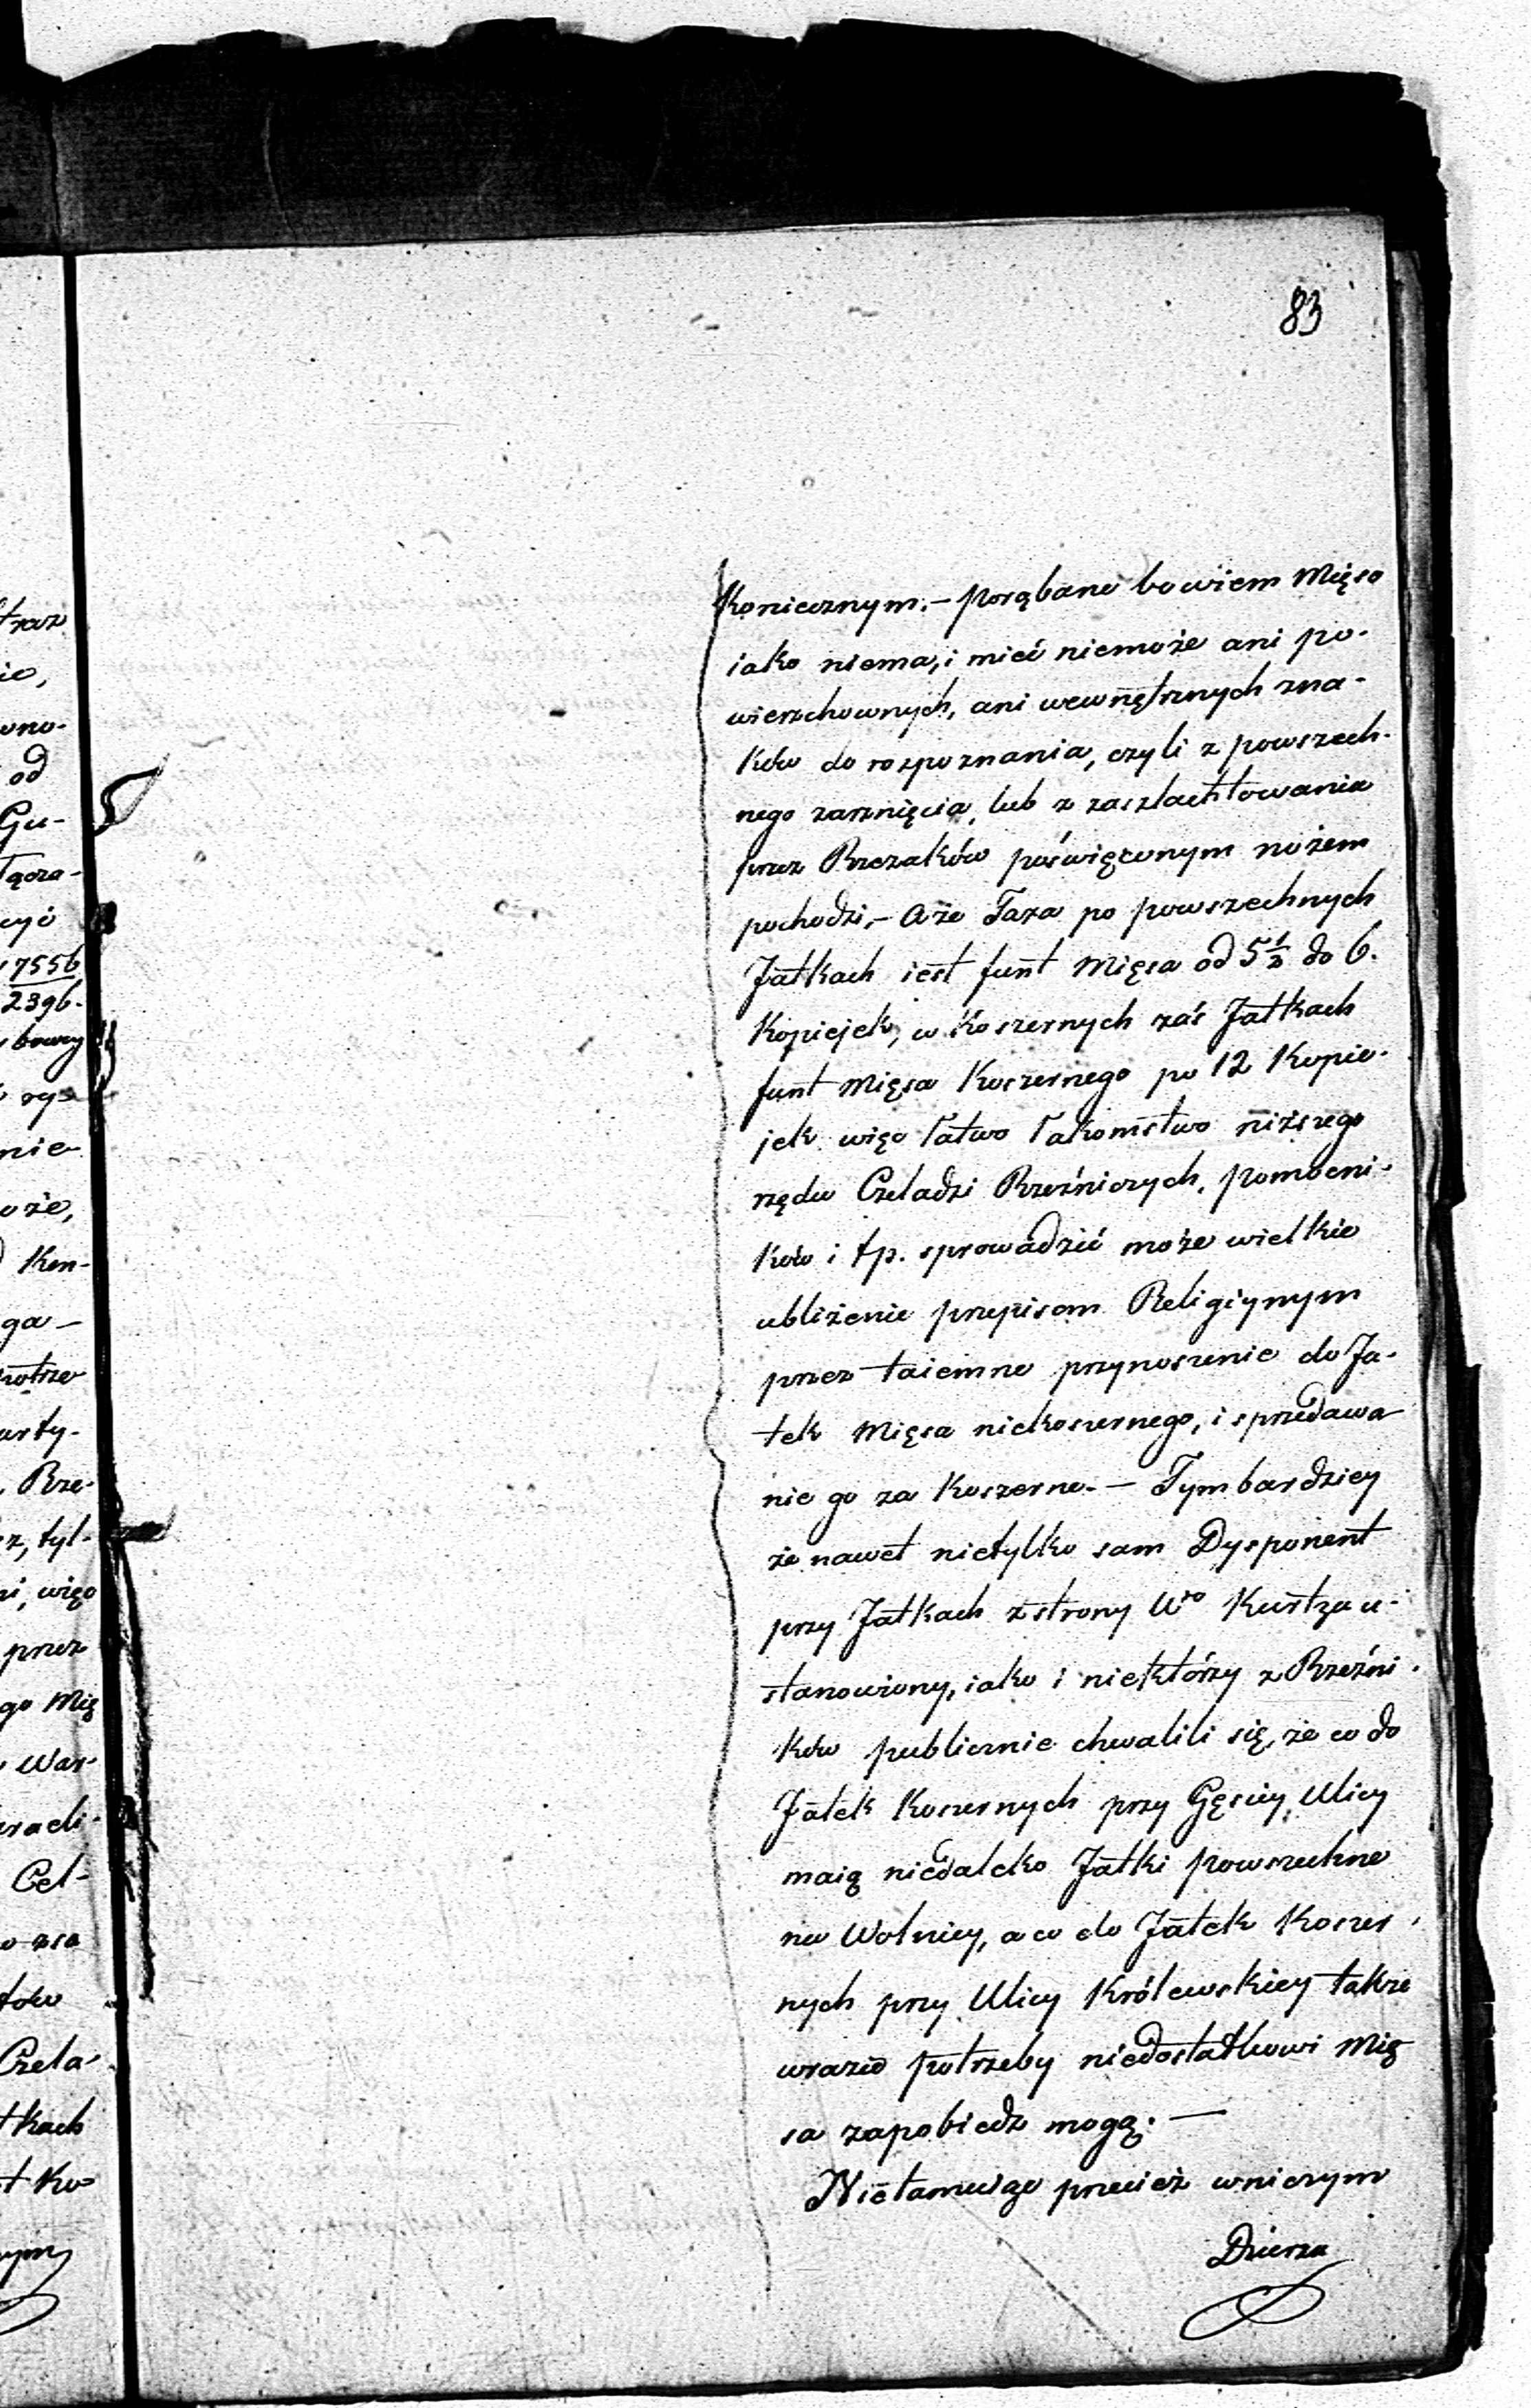 83
Koniecznym.- porąbane bowiem Mięso
iako niema, i mieć niemoże ani po-
wierzchownych, ani wewnętrznych zna-
ków do rozpoznania, czyli z powszech-
nego zarznięcia, lub z zaszlachtowania
przez Rzezaków poświęconym nożem
pochodzi,- a że Taxa po powszechnych
Jatkach iest funt Mięsa od 5 1/2 do 6.
Kopiejek, w Koszernych zaś Jatkach
funt Mięsa Koszernego po 12 Kopie-
jek więc łatwo łakomstwo niższego
rzędu Czeladzi Rzeźniczych, pomocni-
ków i tp. sprowadzić może wielkie
ubliżenie przepisom Religiynym
przez taiemne przynoszenie do Ja-
tek Mięsa niekoszernego, i sprzedawa-
nie go za Koszerne.- Tymbardziey
że nawet nietylko sam Dysponent
przy Jatkach z strony Wo Kurtza u-
stanowiony, iako i niektórzy z Rzeźni-
ków publicznie chwalili się, że co do
Jatek Koszernych przy Gęsiey Ulicy
maią niedaleko Jatki powszechne
na Wolnicy, a co do Jatek Koszer-
nych przy Ulicy Królewskiey także
wrazie potrzeby niedostatkowi Mię
sa zapobiedz mogą.-
Nietamuiąc przecież wniczym
Dzierza
traz
ie,
wno-
od
Gu-
łącza-
cyi
17556
2396.
bowey
ry-
nie
oże,
Kon-
ga-
arty-
Rze-
z, tyl-
ni, więc
przez
go Mię
War-
Cel-
tów
Czela-
tkach
t Ko-